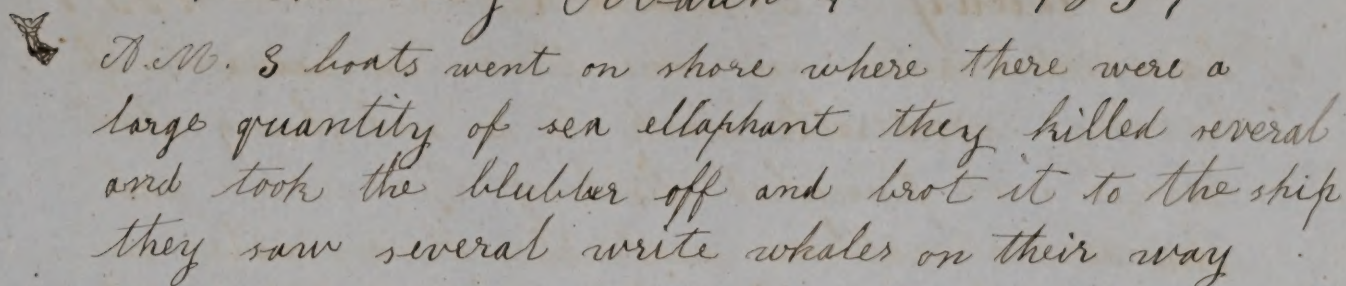 March
A.M. 3 boats went on shore where there were a
large quantity of sea ellaphant they killed several
and took the blubber off and brot it to the ship
they saw several write whales on their way